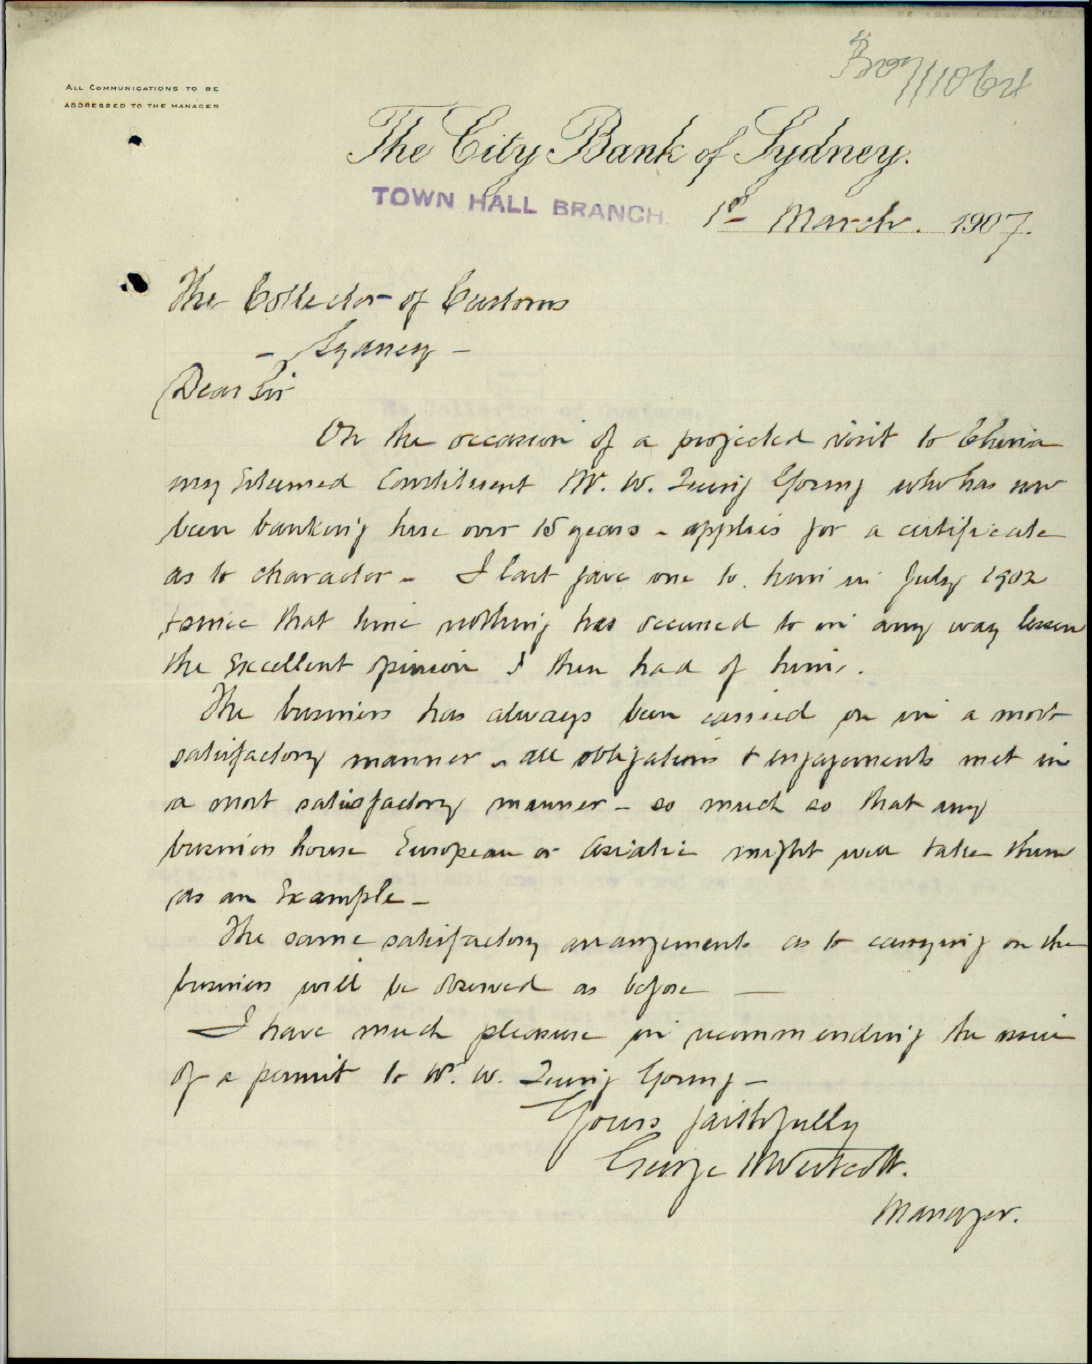 ALL COMMUNICATIONS TO BE
ADDRESSED TO THE MANAGER
The City Bank of Sydney.
TOWN HALL BRANCH.
1st March. 1907.
The Collector of Customs
- Sydney -
Dear Sir
On the occasion of a projected visit to China
my Esteemed Constituent Mr. W. Young who has now
been banking here over 15 years - applies for a certificate
as to character - I last gave one to him in July 1902
& since that time nothing has occurred to in any way lessen
the Excellent opinion I then had of him.
The business has always been carried on in a most
satisfactory manner - all obligations & engagements met in
a most satisfactory manner - so much so that any
business house European or Asiatic might well take them
as an Example -
The same satisfactory arrangements as to carrying on the
business will be observed as before —
I have much pleasure in recommending the issue
of a permit to Mr. W. Young -
Yours faithfully
George Westcott.
Manager.